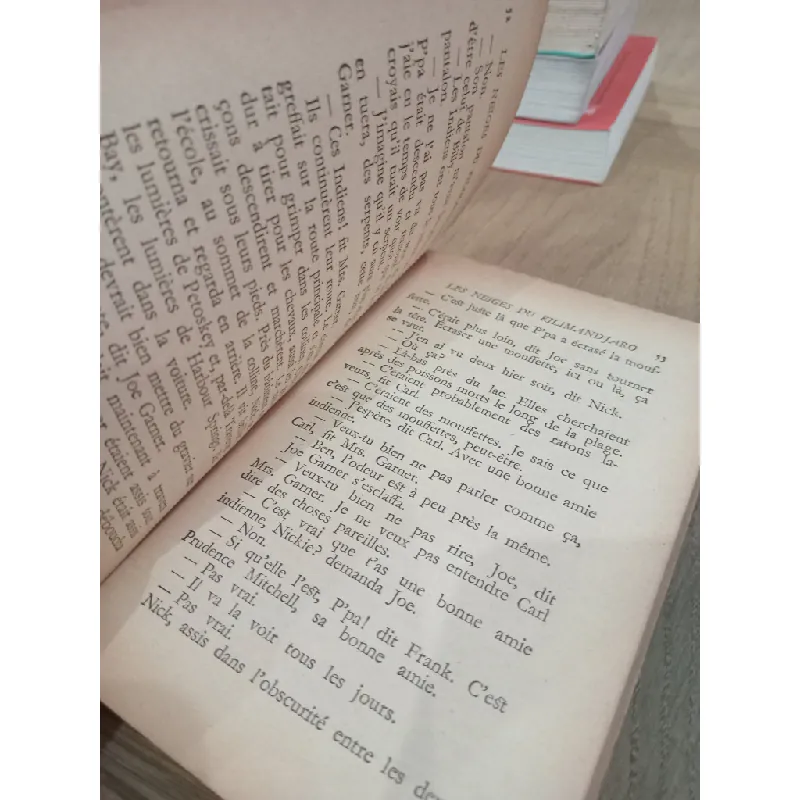 52 LES NEIGES DU
— Non.
— Son pantalon
d'être celui de Billy
— Les Indiens
pantalon.
— Je ne l'ai pas vu
P'pa était descendu
j'aie eu le temps de voir
croyais qu'il tuait un serpent
— J'imagine qu'il y
en tuera, des serpents, cette
Garner.
— Ces Indiens! fit Mrs. Garner
Ils continuèrent leur route. La
greffait sur la route principale et
tait pour grimper dans les collines.
dur à tirer pour les chevaux,
çons descendirent et marchèrent. La
crissait sous leurs pieds. Près du
l'école, au sommet de la colline, Nick
retourna et regarda en arrière. Il vit
les lumières de Petoskey et, par-delà
Bay, les lumières de Harbour Springs
dans la voiture.
devrait bien mettre du
dit Joe Garner.
maintenant à
étaient assis
Nick était
LES NEIGES DU KILIMANDJARO 53
— C'est juste là que P'pa a écrasé la mouf-
fette.
— C'était plus loin, dit Joe sans tourner
la tête. Écraser une mouffette, ici ou là, ça
se vaut.
— J'en ai vu deux hier soir, dit Nick.
— Où ça?
— Là-bas près du lac. Elles cherchaient
après des poissons morts le long de la plage.
— C'étaient probablement des ratons la-
veurs, fit Carl.
— C'étaient des mouffettes. Je sais ce que
c'est que des mouffettes, peut-être.
— J'espère, dit Carl. Avec une bonne amie
indienne.
— Veux-tu bien ne pas parler comme ça,
Carl, fit Mrs. Garner.
— Ben, l'odeur est à peu près la même.
Joe Garner s'esclaffa.
— Veux-tu bien ne pas rire, Joe, dit
Mrs. Garner. Je ne veux pas entendre Carl
dire des choses pareilles.
— C'est vrai que t'as une bonne amie
indienne, Nickie? demanda Joe.
— Non.
— Si qu'elle l'est, P'pa! dit Frank. C'est
Prudence Mitchell, sa bonne amie.
— Pas vrai.
— Il va la voir tous les jours.
— Pas vrai.
Nick, assis dans l'obscurité entre les